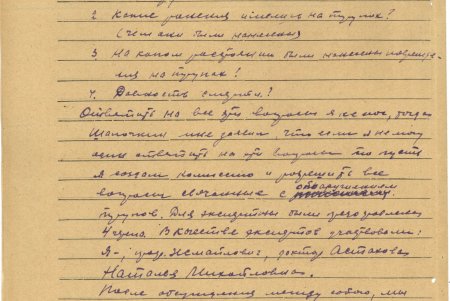 2. Какие ранения имелись на трупах?
(чем они были нанесены
3. На каком расстоянии были нанесены поврежде-
ния на трупах?
4. Давность смерти?
Ответить на все эти вопросы я не мог, тогда
Шапочкин мне заявил, что если я не могу
один ответить на эти вопросы то пусть
я создам комиссию и разрешить все
вопросы связанные с обнаружением
трупов. Для экспертизы были представлены
4 трупа. В качестве экспертов участвовали:
Я-, проф. Исмайлович, доктор Астахова
Наталья Михайловна.
После обсуждения между собою, мы